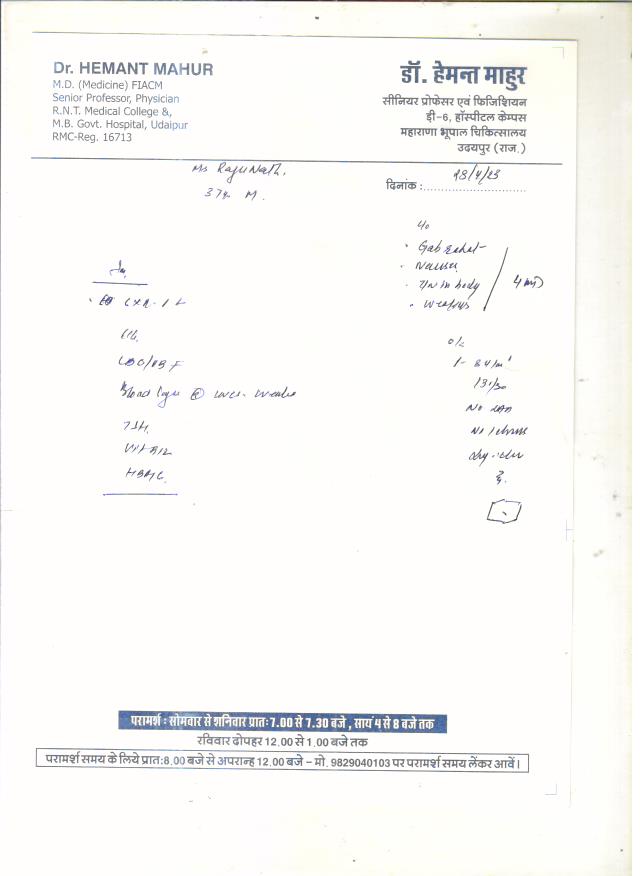 Dr. HEMANT MAHUR
M.D. (Medicine) FIACM
Senior Professor, Physician
R.N.T. Medical College &,
M.B. Govt. Hospital, Udaipur
RMC-Reg. 16713
डॉ. हेमन्त माहुर
सीनियर प्रोफेसर एवं फिजिशियन
डी-6, हॉस्पीटल केम्पस
महाराणा भूपाल चिकित्सालय
उदयपुर (राज.)
Raju Nath.
M.
दिनांक : 28/4/23
c/o
• Gabrahat
• Nausea
• in body
• Weakness
CXR
CBC
Blood Sugar @
TSH.
Vit B12
HBA1C
o/e
84/m
No
No
परामर्श : सोमवार से शनिवार प्रातः 7.00 से 7.30 बजे , सायं 4 से 8 बजे तक
रविवार दोपहर 12.00 से 1.00 बजे तक
परामर्श समय के लिये प्रातः 8.00 बजे से अपरान्ह 12.00 बजे – मो. 9829040103 पर परामर्श समय लेंकर आवें।